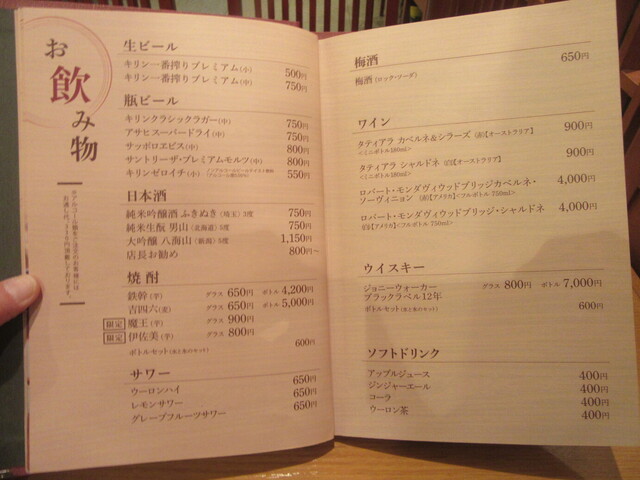 お飲み物
生ビール
キリン一番搾りプレミアム(小) 500円
キリン一番搾りプレミアム(中) 750円
瓶ビール
キリンクラシックラガー(中) 750円
アサヒスーパードライ(中) 750円
サッポロヱビス(中) 800円
サントリーザ・プレミアムモルツ(中) 800円
キリンゼロイチ(小) 550円
日本酒
純米吟醸酒 ふきぬき〈埼玉〉3度 750円
純米生酛 男山〈北海道〉5度 750円
大吟醸 八海山〈新潟〉5度 1,150円
店長お勧め 800円~
焼酎
鉄幹(芋) グラス 650円 ボトル 4,200円
吉四六(麦) グラス 650円 ボトル 5,000円
限定 魔王(芋) グラス 900円
限定 伊佐美(芋) グラス 800円
ボトルセット(氷と水のセット) 600円
サワー
ウーロンハイ 650円
レモンサワー 650円
グレープフルーツサワー 650円
梅酒
梅酒(ロック・ソーダ) 650円
ワイン
タティアラ カベルネ&シラーズ (赤)【オーストラリア】 900円
<ミニボトル180ml>
タティアラ シャルドネ (白)【オーストラリア】 900円
<ミニボトル180ml>
ロバート・モンダヴィウッドブリッジカベルネ・ 4,000円
ソーヴィニョン (赤)【アメリカ】<フルボトル 750ml>
ロバート・モンダヴィウッドブリッジ・シャルドネ 4,000円
(白)【アメリカ】<フルボトル 750ml>
ウイスキー
ジョニーウォーカー グラス 800円 ボトル 7,000円
ブラックラベル12年
ボトルセット(氷と水のセット) 600円
ソフトドリンク
アップルジュース 400円
ジンジャーエール 400円
コーラ 400円
ウーロン茶 400円